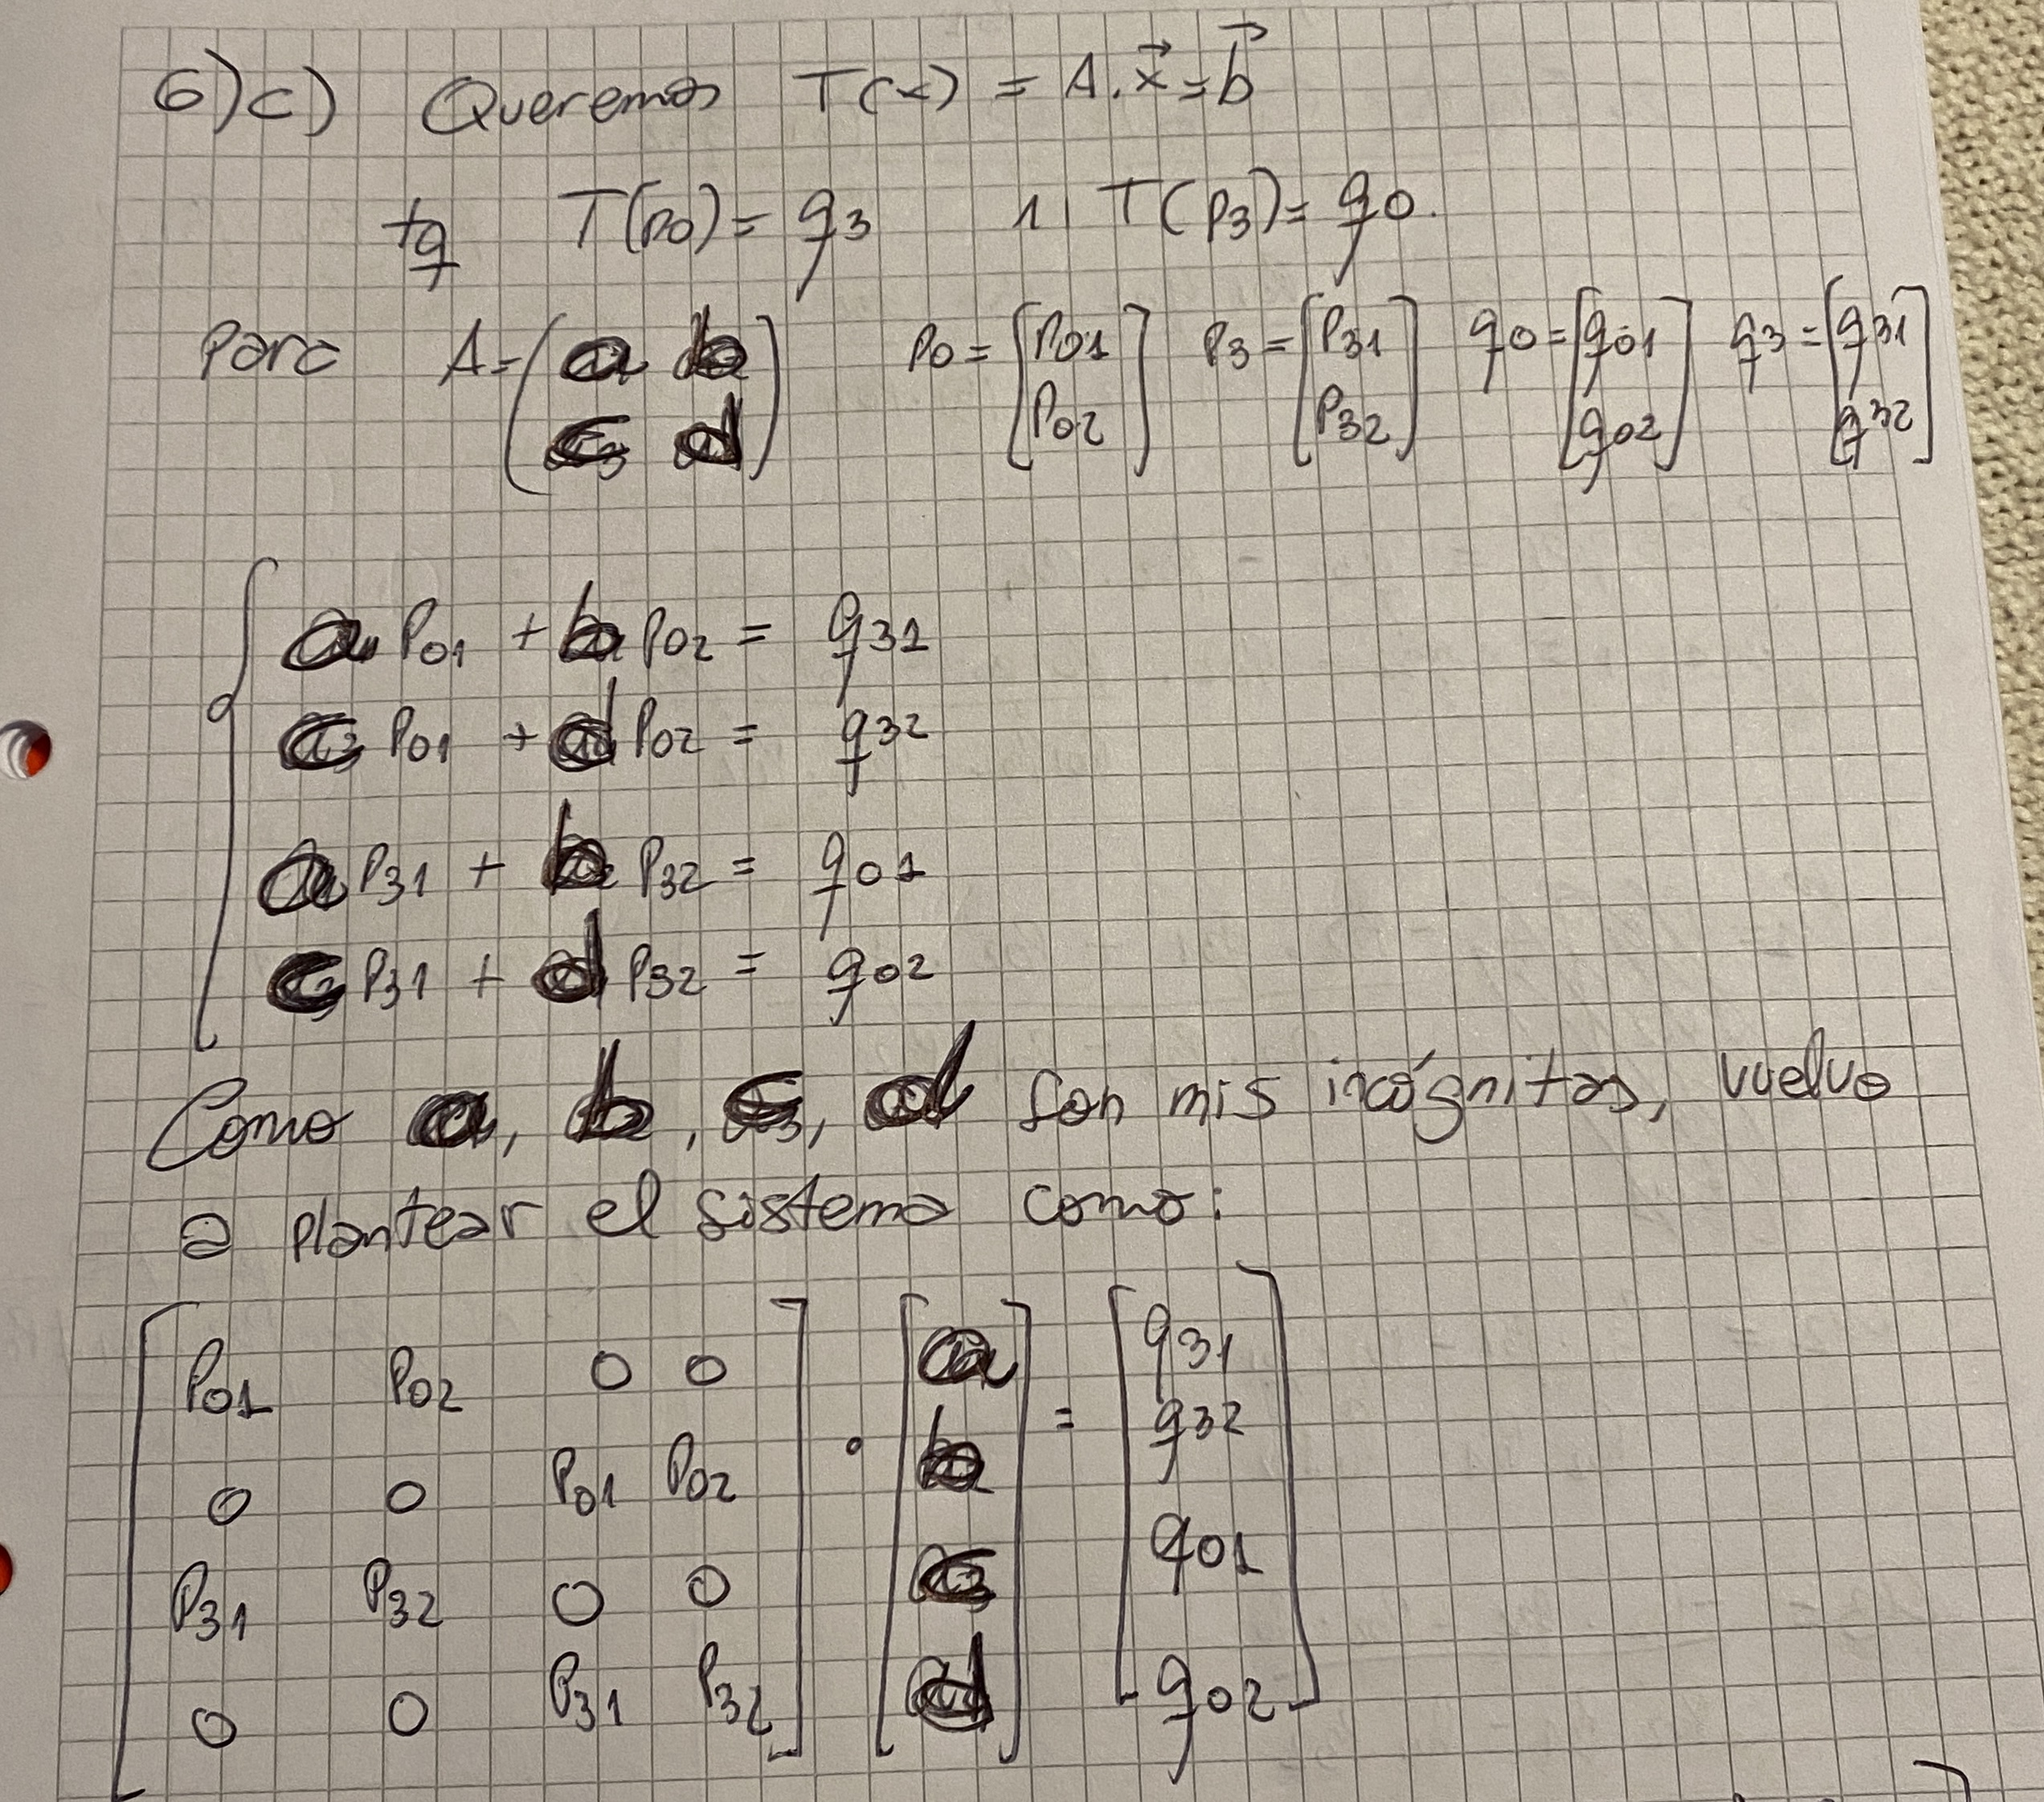 6)c) Queremos T(x) = A.x⃗ = b⃗
tq T(p0) = q3 ∧ T(p3) = q0.
Para A = (a b c d) p0 = [p01 p02] p3 = [p31 p32] q0 = [q01 q02] q3 = [q31 q32]
a p01 + b p02 = q31
c p01 + d p02 = q32
a p31 + b p32 = q01
c p31 + d p32 = q02
Como a, b, c, d son mis incógnitas, vuelvo
a plantear el sistema como:
[p01 p02 0 0] · [a] = [q31]
[0 0 p01 p02] [b] [q32]
[p31 p32 0 0] [c] [q01]
[0 0 p31 p32] [d] [q02]